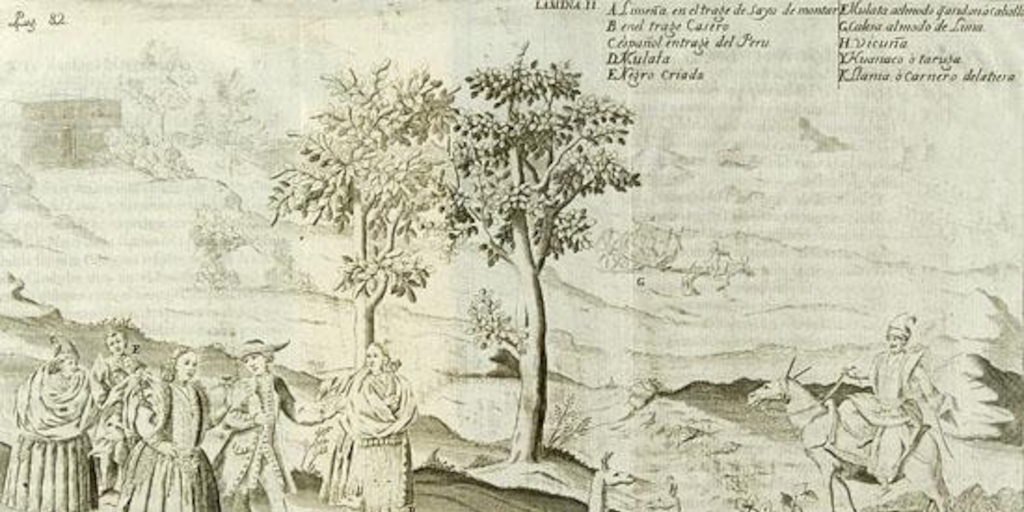 Pag. 82.
LAMINA II.
A Limeña, en el trage de saya de montar
B en el trage Casero
C español en trage del Peru
D Mulata
E Negro Criado
F Mulata
G Calesa al modo de Lima.
H. Vicuña
Y Huanaco ò taruga.
K Llama, ò Carnero de la tierra
E
G
D